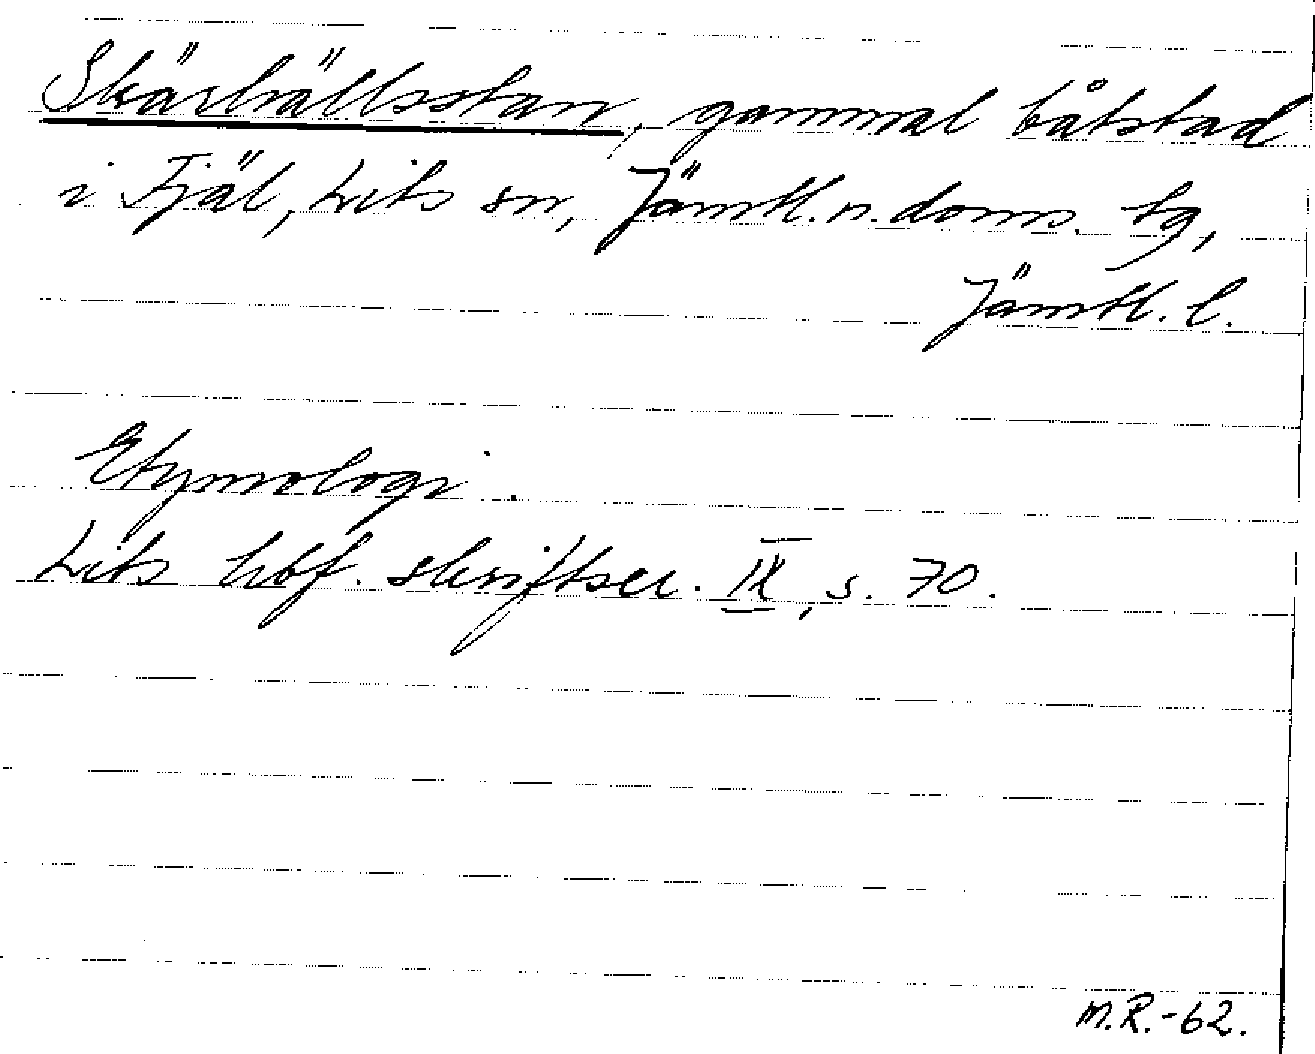 Skärhällsstan, gammal båtstad
i Fjäl, Lits sn, Jämtl. n. doms. tg,
Jämtl. l.
Etymologi.
Lits hbf. skriftser. IX, s. 70.
M.R.-62.